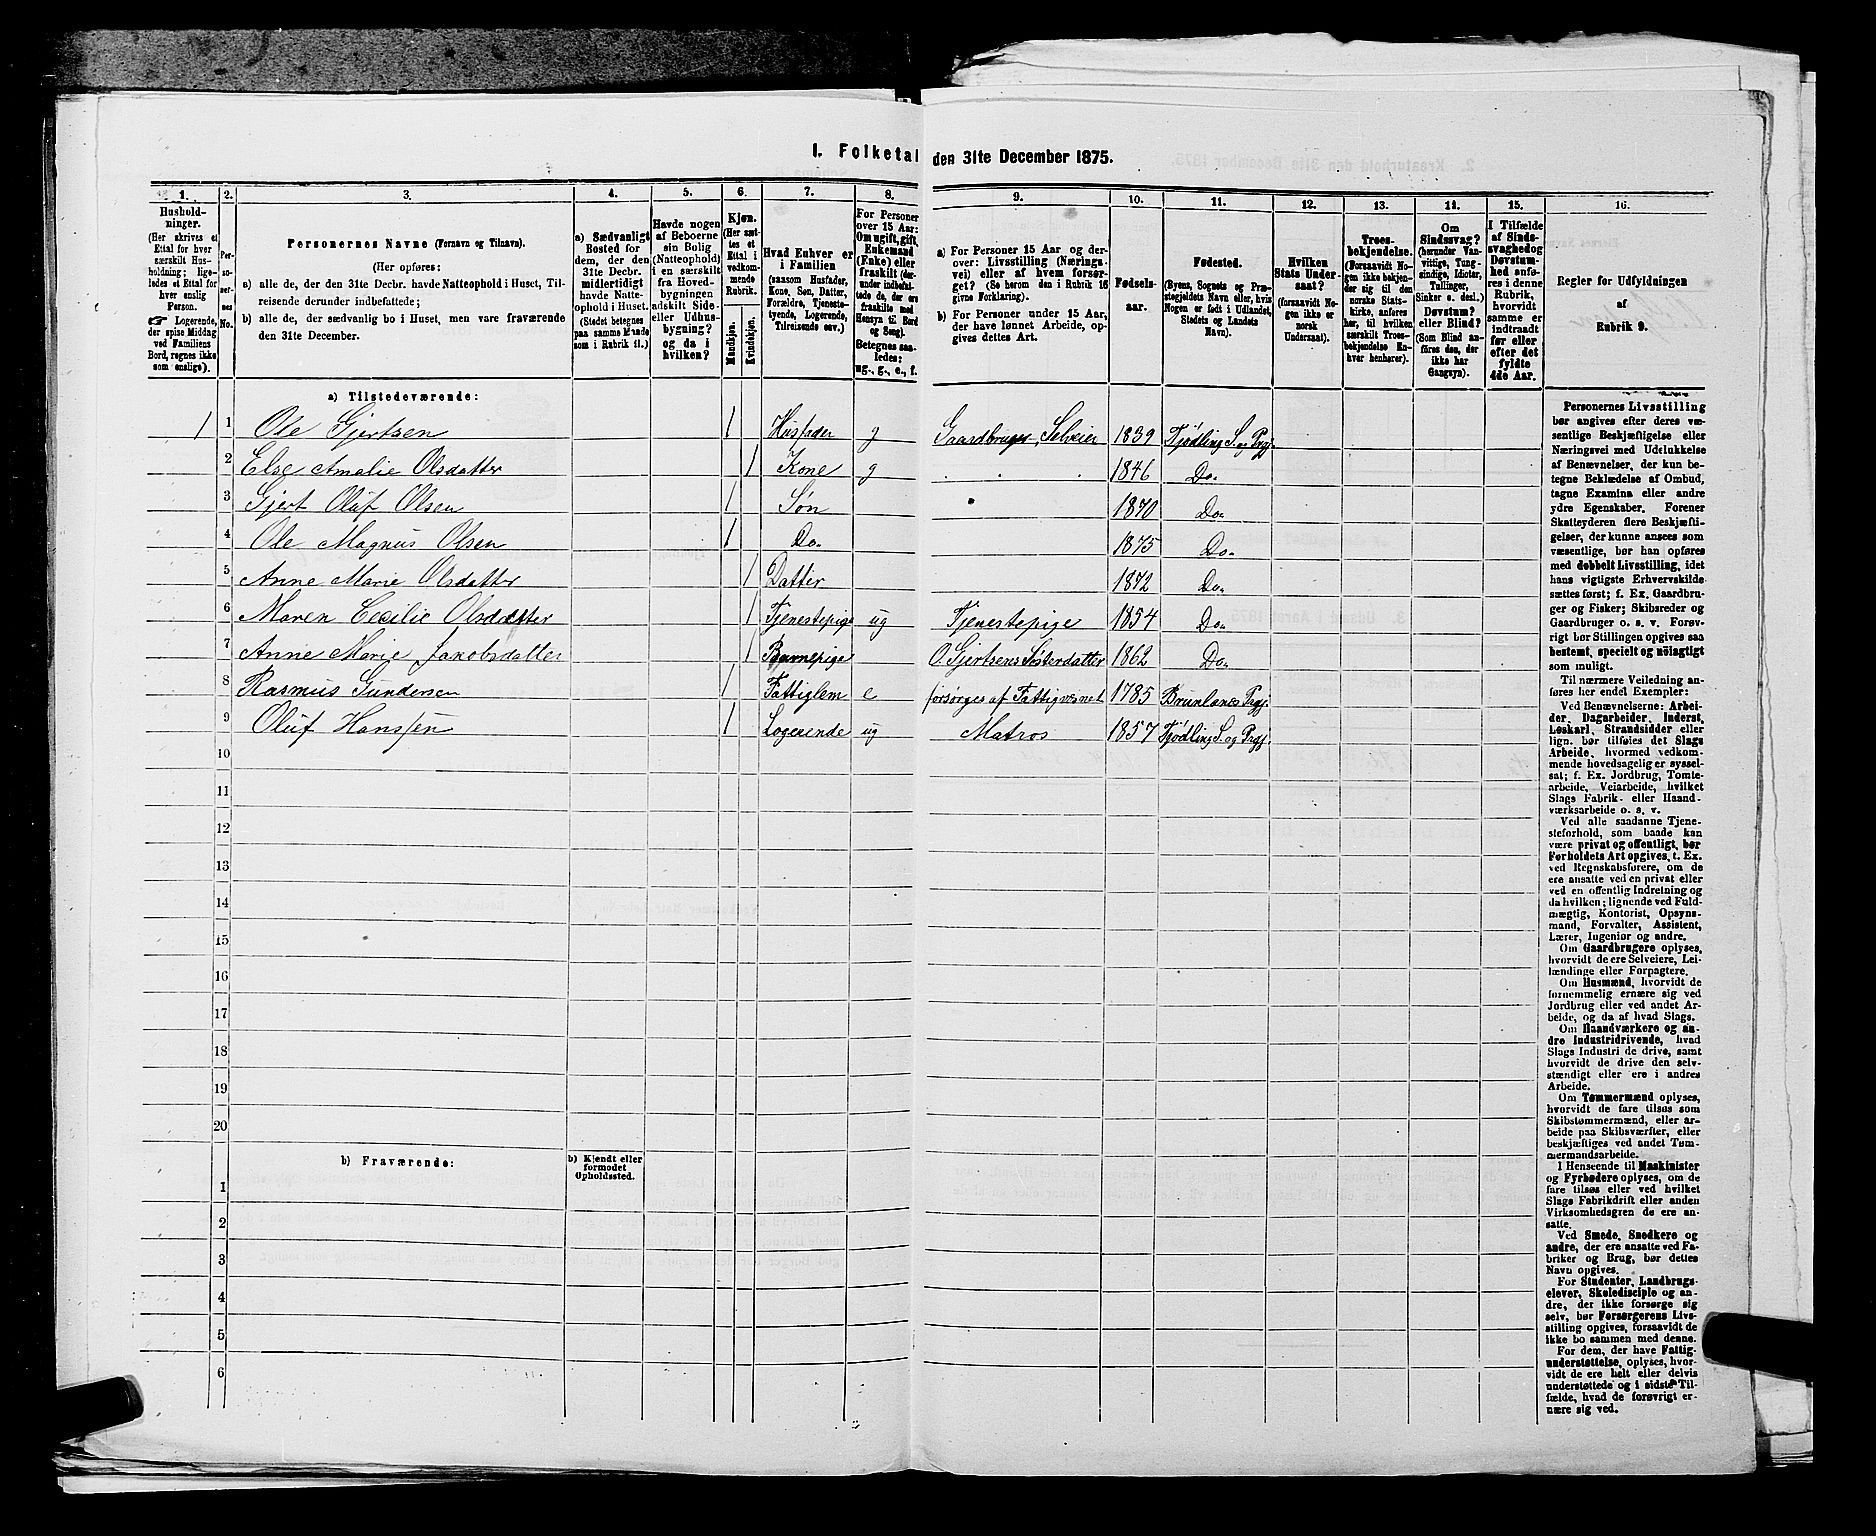 1. Folketal den 31te December 1875.
1. 2. 3. 4. 5. 6. 7. 8. 9. 10. 11. 12. 13. 14. 15. 16.
Hushold-
ninger.
(Her skrives et
Ettal for hver
særskilt Hus-
holdning; lige-
ledes et Ettal for
hver enslig
Person.
☞ Logerende,
der spise Middag
ved Familiens
Bord, regnes ikke
som enslige).
Per-
so-
ner-
nes
No.
Personernes Navne (Fornavn og Tilnavn).
(Her opføres:
a) alle de, der den 31te Decbr. havde Natteophold i Huset, Til-
reisende derunder indbefattede;
b) alle de, der sædvanlig bo i Huset, men vare fraværende
den 31te December.
a) Sædvanligt
Bosted for
dem, der den
31te Decbr.
midlertidigt
havde Natte-
ophold i Huset.
(Stedet betegnes
paa samme Maade
som i Rubrik 11.)
Havde nogen
af Beboerne
sin Bolig
(Natteophold)
i en særskilt
fra Hoved-
bygningen
adskilt Side-
eller Udhus-
bygning?
og da i
hvilken?
Kjøn.
(Her sæt-
tes et
Ettal i
vedkom-
mende
Rubrik.
Mandkjøn.
Kvindekjøn.
Hvad Enhver er
i Familien
(saasom Husfader,
Kone, Søn, Datter,
Forældre, Tjeneste-
tyende, Logerende,
Tilreisende osv.)
For Personer
over 15 Aar:
Om ugift, gift,
Enkemand
(Enke) eller
fraskilt (der-
under indbefat-
tede de, der ere
fraskilte med
Hensyn til Bord
og Seng).
Betegnes saa-
ledes:
ug., g., e., f.
a) For Personer 15 Aar og der-
over: Livsstilling (Nærings-
vei) eller af hvem forsør-
get? (Se herom den i Rubrik 16
givne Forklaring).
b) For Personer under 15 Aar,
der have lønnet Arbeide, op-
gives dettes Art.
Fødsels-
aar.
Fødested.
(Byens, Sognets og Præ-
stegjeldets Navn eller, hvis
Nogen er født i Udlandet,
Stedets og Landets
Navn).
Hvilken
Stats Under-
saat?
(forsaavidt No-
gen ikke er
norsk
Undersaat).
Troes-
bekjendelse.
(Forsaavidt No-
gen ikke bekjen-
der sig til den
norske Stats-
kirke, anføres
her, til hvilken
særskilt Troes-
bekjendelse En-
hver henhører).
Om
Sindssvag?
(herunder Van-
vittige, Tung-
sindige, Idioter,
Tullinger,
Sinker o. desl.)
Døvstum?
eller Blind?
(Som Blind an-
føres den, der
ikke har
Gangsyn).
I Tilfælde
af Sinds-
svaghed og
Døvstum-
hed anfø-
res i denne
Rubrik,
hvorvidt
samme er
indtraadt
før eller
efter det
fyldte
4de Aar.
Regler for Udfyldningen
af
Rubrik 9.
a) Tilstedeværende:
1 1 Ole Gjertsen 1 Husfader g Gaardbruger, Selveier 1839 Tjødling S. og Prgj.
2 Else Amalie Olsdatter 1 Kone g 1846 Do.
3 Gjert Oluf Olsen 1 Søn 1870 Do.
4 Ole Magnus Olsen 1 Do. 1875 Do.
5 Anne Marie Olsdatter 1 Datter 1872 Do.
6 Maren Cecilie Olsdatter 1 Tjenestepige ug Tjenestepige 1854 Do.
7 Anne Marie Jakobsdatter 1 Barnepige O. Gjertsens Søsterdatter 1862 Do.
8 Rasmus Gundersen 1 Fattiglem e forsørges af Fattigvæsnet 1785 Brunlanes Prgj.
9 Oluf Hanssen 1 Logerende ug Matros 1857 Tjødling S. og Prgj.
10
11
12
13
14
15
16
17
18
19
20
b) Fraværende:
b) Kjendt eller
formodet
Opholdssted.
1
2
3
4
5
6
Personernes Livsstilling
bør angives efter deres væ-
sentlige Beskjæftigelse eller
Næringsvei med Udelukkelse
af Benævnelser, der kun be-
tegne Beklædelse af Ombud,
tagne Examina eller andre
ydre Egenskaber. Forener
Skatteyderen flere Beskjæfti-
gelser, der kunne ansees som
væsentlige, bør han opføres
med dobbelt Livsstilling, idet
hans vigtigste Erhvervskilde
sættes først; f. Ex. Gaardbru-
ger og Fisker; Skibsreder og
Gaardbruger o. s. v. Forøv-
rigt bør Stillingen opgives saa
bestemt, specielt og nøiagtigt
som muligt.
Til nærmere Veiledning an-
føres her endel Exempler:
Ved Benævnelserne: Arbei-
der, Dagarbeider, Inderst,
Løskarl, Strandsidder eller
lign. bør tilføies det Slags
Arbeide, hvormed vedkom-
mende hovedsagelig er syssel-
sat; f. Ex. Jordbrug, Tomte-
arbeide, Veiarbeide, hvilket
Slags Fabrik- eller Haand-
værksarbeide o. s. v.
Ved alle saadanne Tjene-
steforhold, som baade kan
være privat og offentligt, bør
Forholdets Art opgives, t. Ex.
ved Regnskabsførere, om de
ere ansatte ved en privat eller
ved en offentlig Indretning og
da hvilken; lignende ved Fuld-
mægtig, Kontorist, Opsyns-
mand, Forvalter, Assistent,
Lærer, Ingeniør og andre.
Om Gaardbrugere oplyses,
hvorvidt de ere Selveiere, Lei-
lændinge eller Forpagtere.
Om Husmænd, hvorvidt de
fornemmelig ernære sig ved
Jordbrug eller ved andet Ar-
beide, og da af hvad Slags.
Om Haandværkere og an-
dre Industridrivende, hvad
Slags Industri de drive, samt
hvorvidt de drive den selv-
stændigt eller ere i andres
Arbeide.
Om Tømmermænd oplyses,
hvorvidt de fare tilsøs som
Skibstømmermænd, eller ar-
beide paa Skibsværfter, eller
beskjæftiges ved andet Tøm-
mermandsarbeide.
I Henseende til Maskinister
og Fyrbødere oplyses, om de
fare tilsøs eller ved hvilket
Slags Fabrikdrift eller anden
Virksomhedsgren de ere an-
satte.
Ved Smede, Snedkere og
andre, der ere ansatte ved Fa-
briker og Brug, bør dettes
Navn opgives.
For Studenter, Landbrugs-
elever, Skoledisciple og an-
dre, der ikke forsørge sig
selv, bør Forsørgerens Livs-
stilling opgives, forsaavidt de
ikke bo sammen med denne.
For dem, der have Fattig-
understøttelse, oplyses, hvor-
vidt de ere helt eller delvis
understøttede og i sidste Til-
fælde, hvad de forøvrigt er-
nære sig ved.